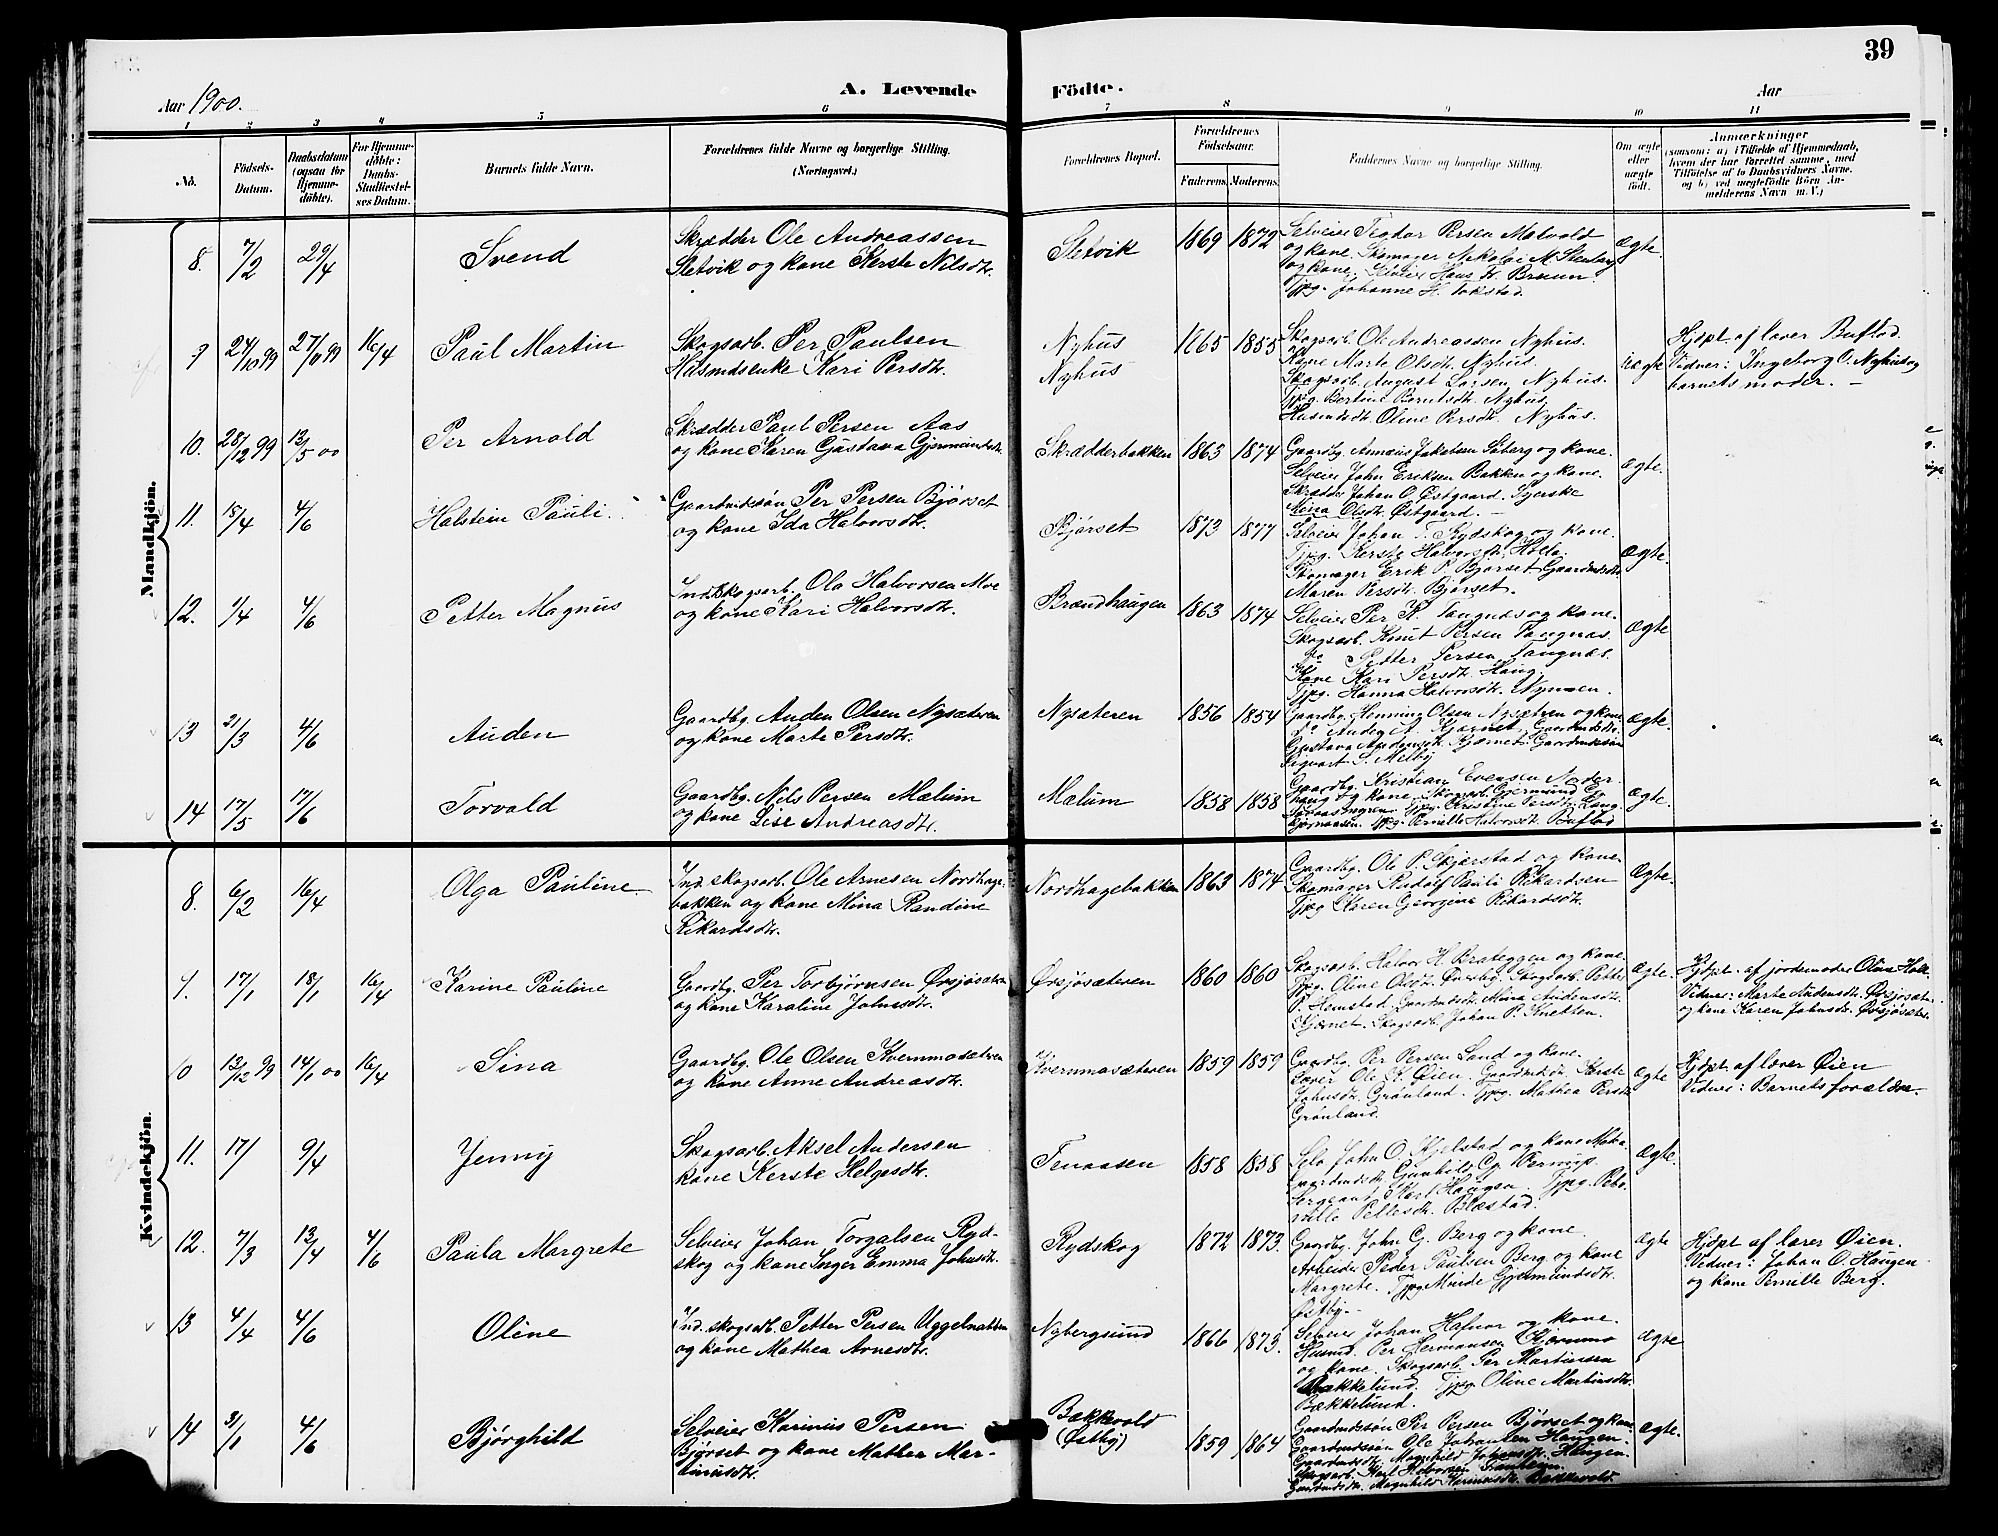 39
Aar 1900.
A. Levende Födte.
Aar
1 2 3 4 5 6 7 8 9 10 11
No.
Födsels-Datum.
Daabsdatum (ogsaa for Hjemmedöbte).
For Hjemmedöbte: Daabs-Stadfæstelses Datum.
Barnets fulde Navn.
Forældrenes fulde Navne og borgerlige Stilling.
(Næringsvei.)
Forældrenes Bopæl.
Forældrenes Födselsaar.
Faderens. Moderens.
Faddernes Navne og borgerlige Stilling.
Om ægte eller uægte födt.
Anmærkninger
(saasom: a) i Tilfælde af Hjemmedaab,
hvem der har forrettet samme, med
Tilföielse af to Daabsvidners Navne,
og b) ved uægtefödte Börn Anmelderens Navn m. V.)
Mandkjön.
8. 7/2 29/4 Svend
Skrædder Ole Andreassen
Sletvik og kone Kerste Nilsdtr.
Sletvik 1869 1872
og kone. Skomager Nikolai M. Stenberg
og kone. Hans Tr. Bruun.
Tjpg. Johanne H. Tokstad.
Ægte.
9 24/10 99 27/10 99 16/4 Paul Martin
Skogsarb. Per Paulsen
Husmdsenke Kari Persdtr.
Nyhus
Nyhus
1865 1855
Skogsarb. Ole Andreassen Nyhus.
Kone Marte Olsdtr. Nyhus.
Skogsarb. August Larsen Nyhus.
Tjpg. Bertine Berntsdtr. Nyhus.
Husmdsdtr. Oline Persdtr. Nyhus.
uægte
Hjdpt af lærer Buflod
Vidner: Ingeborg O. Nyhus og
barnets moder. —
10. 28/12 99 13/5 00 Per Arnold
Skrædder Paul Persen Aas
og kone Karen Gustava Gjermundsdtr.
Skrædderbakken 1863 1874
Gaardbg. Annæus Jakobsen Söberg og kone.
Selveier John Eriksen Bakken og kone.
Skrædder Johan O. Østgaard. Syerske
Mina Olsdtr. Østgaard. —
ægte.
11. 15/4 4/6 Halstein Pauli.
Gaardmdssön Per Persen Bjørset
og kone Ida Halvorsdtr.
Bjørset 1873 1877
Selveier Johan T. Rydskog og kone.
Tjpg. Kerste Halvorsdtr. Holla.
Skomager Erik P. Bjørset. Gaardmdsdtr.
Maren Persdtr. Bjørset.
Ægte.
12. 1/4 4/6 Petter Magnus
Ind. Skogsarb. Ola Halvorsen Moe
og kone Kari Halvorsdtr.
Brændhaugen 1863 1874
Selveier Per K. Tangnæs og kone.
Skogsarb. Knut Persen Tangnæs.
do Petter Persen Tangnæs.
Kone Kari Persdtr. Haug.
Tjpg. Hanna Halvorsdtr. Nymoen.
Ægte
13 21/3 4/6 Auden
Gaardbg. Auden Olsen Nysæteren
og kone Marte Persdtr.
Nysæteren 1856 1854
Gaardbg. Henning Olsen Nysætren og kone
do Anders A. Kjærnet. Gaardmdsdtr.
Gustava Audensdtr. Kjærnet. Gaardmdssön
Sigvart S. Melby
ægte.
14 17/5 17/6 Torvald
Gaardbg. Nils Persen Mælum
og kone Lise Andreasdtr.
Mælum 1858 1858
Gaardbg. Kristian Evensen Neder-
haug og kone. Skogsarb. Gjermund G.
Tjpg. Kristine Persdtr. Lang-
Tjpg. Pernille Halvorsdtr. Buflod
Ægte.
Kvindekjön.
8. 6/2 16/4 Olga Pauline
Ind. skogsarb. Ole Arnesen Nordhage-
bakken og kone Mina Randine
Rikardsdtr.
Nordhagebakken 1863 1874
Gaardbg. Ole P. Skjærstad og kone.
Skomager Rudolf Pauli Rikardsen
Tjpg. Karen Georgine Rikardsdtr.
Ægte.
9. 17/1 18/1 16/4 Karine Pauline
Gaardbg. Per Torbjørnsen Ørsjøsæteren
og kone Karoline Johnsdtr.
Ørsjøsæteren 1860 1860
Skogsarb. Halvor H. Brateggen og kone.
Tjpg. Oline Olsdtr. Øiersby. Skogsarb. Petter
P. Hemstad. Gaardmdsdtr. Mina Audensdtr.
Kjærnet. Skogsarb. Johan P. Knetten.
Ægte.
Hjdpt. af jordemoder Oline Holla.
Vidner: Marte Audensdtr. Ørsjøsæter
og kone Karen Johnsdtr. Ørsjøsæter.
10 12/12 99 14/1 00 16/4 Sina
Gaardbg. Ole Olsen Kvernmosætren
og kone Anne Andreasdtr.
Kvernmosæteren 1859 1859
Gaardbg. Per Persen Sand og kone.
Lærer Ole K. Øien. Gaardmdsdtr. Kerste
Johnsdtr. Grønland. Tjpg. Mathea Persdtr.
Grønland.
ægte
Hjdpt af lærer Øien
Vidner: Barnets forældre.
11. 17/1 9/4 Jenny
Skogsarb. Aksel Andersen
kone Kerste Helgesdtr.
Tenaasen 1858 1858
Selv. John O. Kjelstad og kone
Gaardmdsdtr. Gunhild G.
Sergeant Karl Haugen. Tjpg.
Pettersdtr. Blæstad.
ægte.
12. 7/3 13/4 4/6 Paula Margrete
Selveier Johan Torgalsen Ryd-
skog og kone Inger Emma Johnsdtr.
Rydskog 1872 1873.
Gaardbg. John G. Berg og kone.
Arbeider Peder Paulsen Berg og kone
Margrete. Tjpg. Gjermundsdtr.
Østby. —
ægte
Hjdpt af lærer Øien.
Vidner: Johan O. Haugen
og kone Pernille Berg.
13 4/4 4/6 Oline
Ind. skogsarb. Petter Persen Uggelnabben
og kone Mathea Arnesdtr.
Nybergsund 1866 1873.
Selveier Johan Hafnor og kone.
Husmd. Per Hermansen Kjærnmo
og kone. Skogsarb. Per Martinsen
Bækkelund. Tjpg. Oline Martinsdtr.
Bækkelund.
ægte
14 31/1 4/6 Bjørghild
Selveier Karinus Persen
Bjørset og kone Mathea Mar-
tinusdtr.
Bækkevold
(Østby)
1859 1864
Gaardmdssön Per Persen Bjørset og kone
Gaardmdssön Ole Johansen Haugen.
Gaardmdsdtr. Magnhild Johansdtr. Haugen.
Skogsarb. Karl Halvorsen
Gaardmdsdtr. Magnhild Hermansdtr. Bækkevold.
ægte.